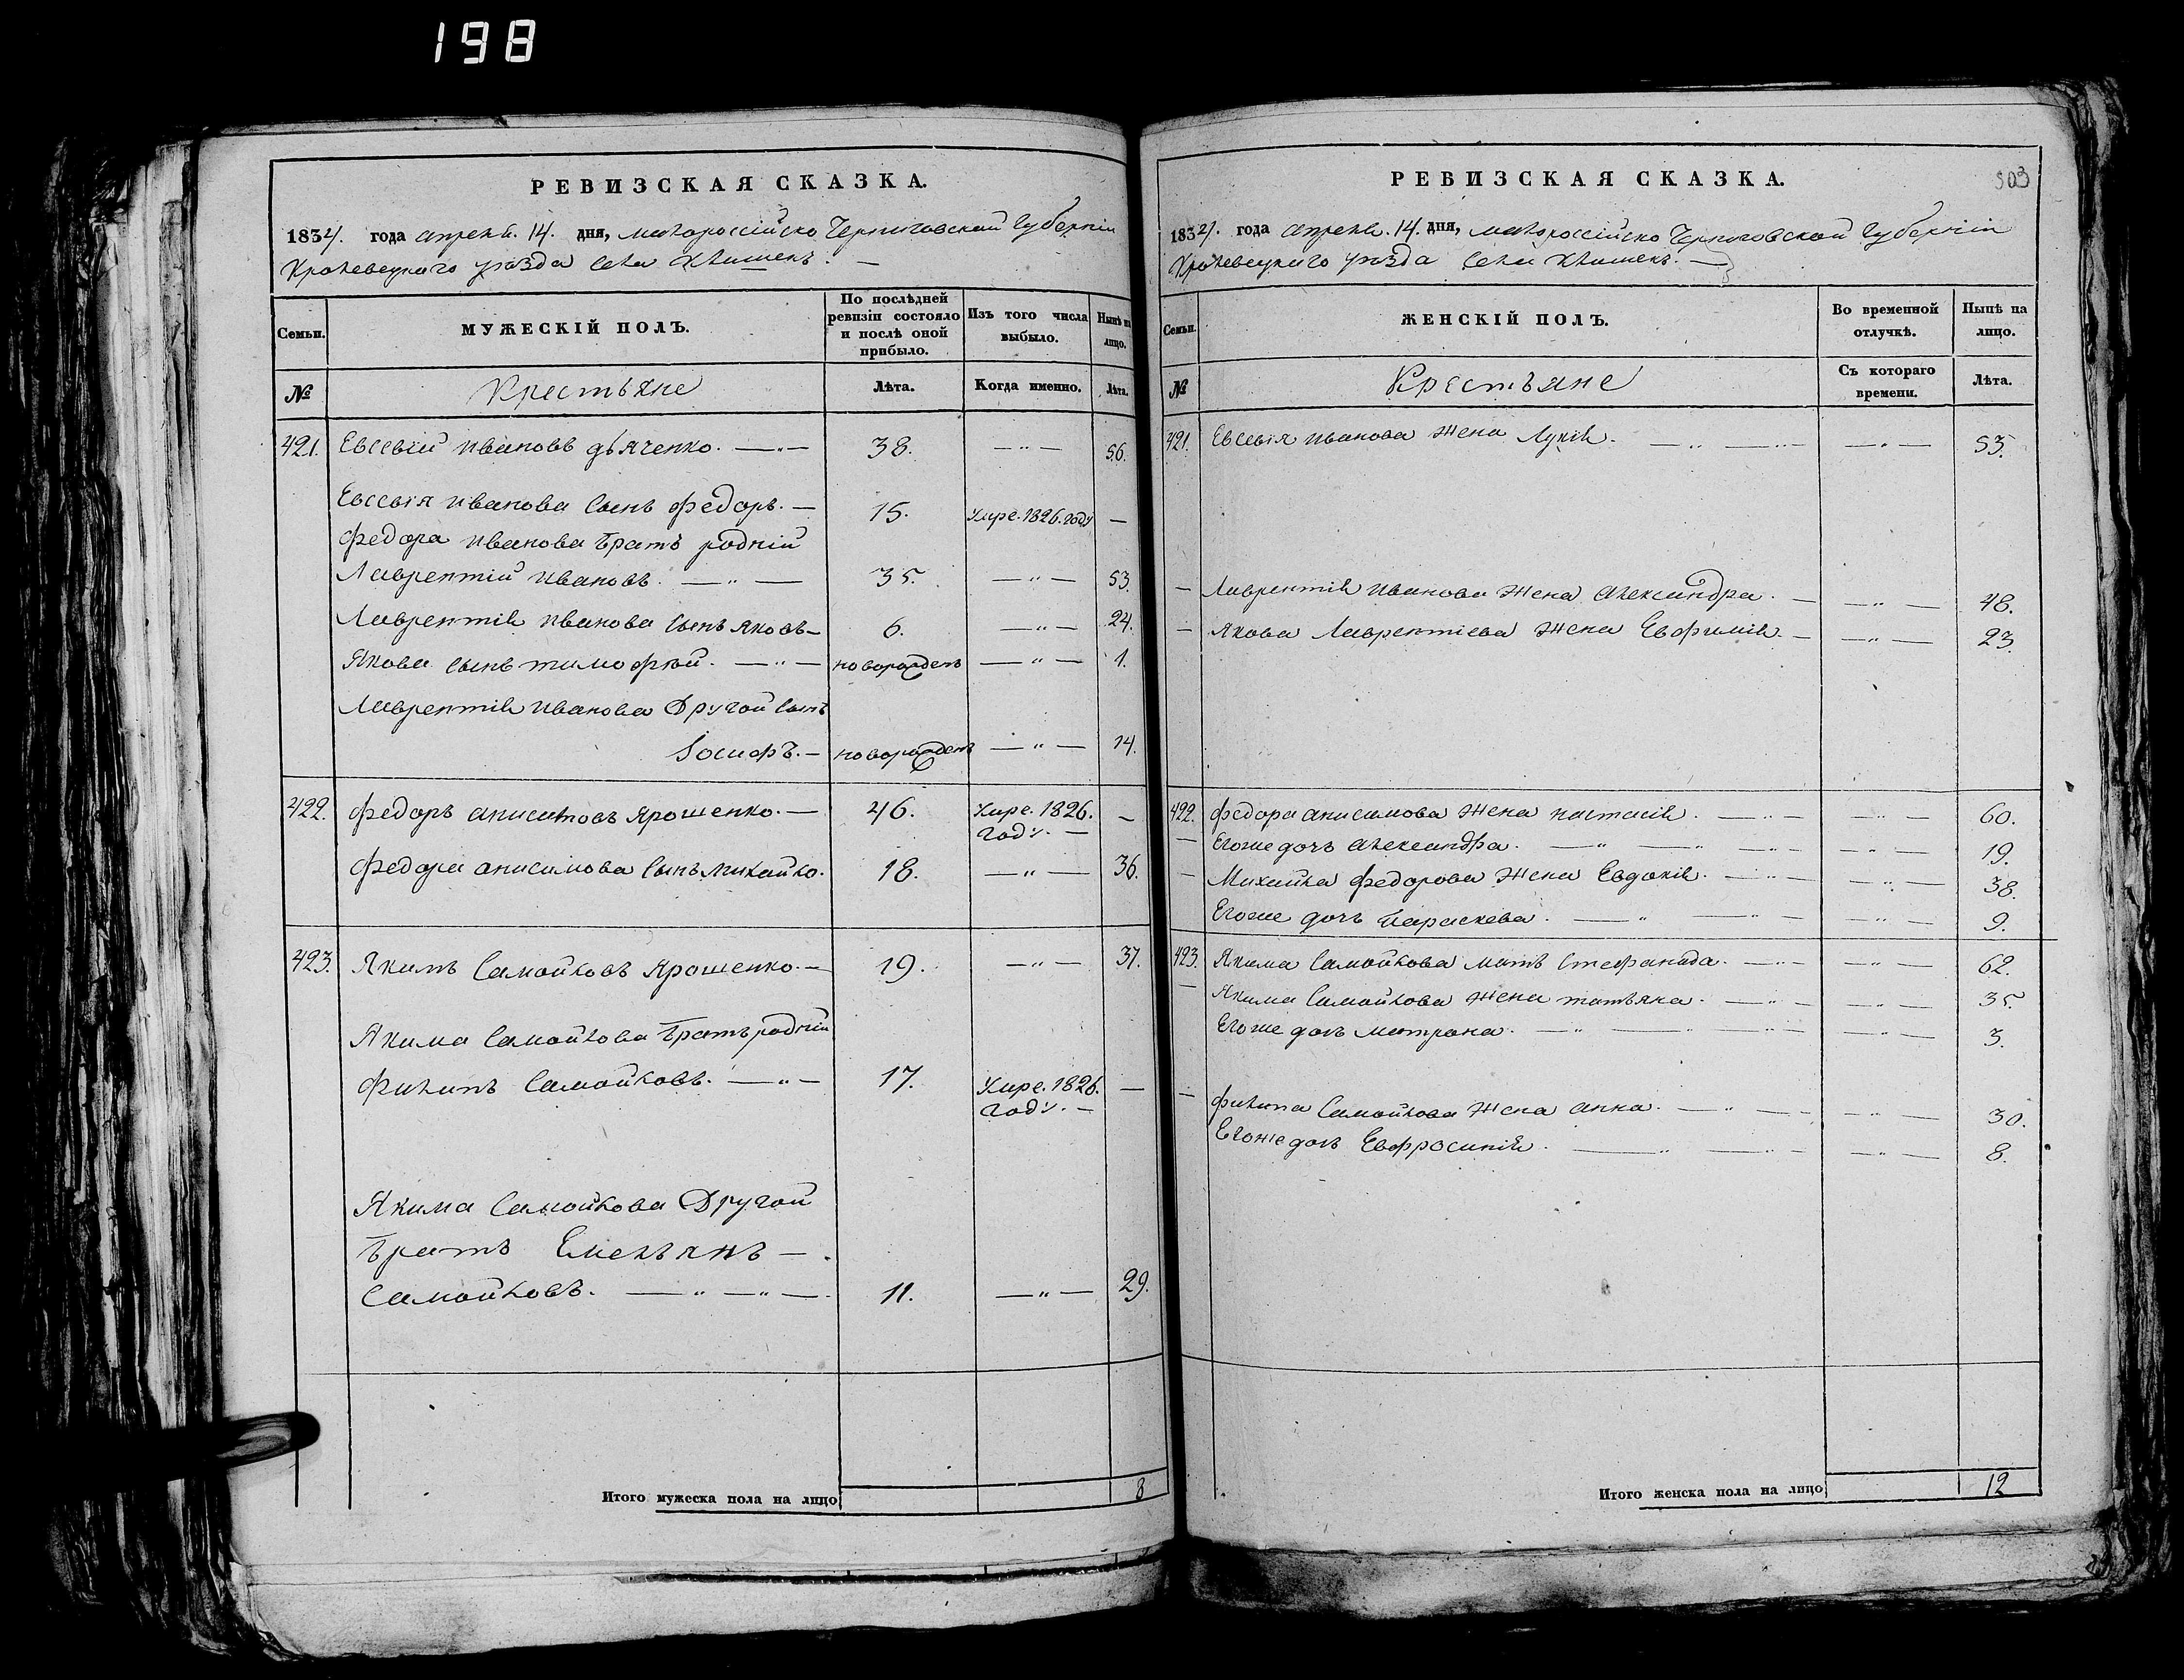 198
РЕВИЗСКАЯ СКАЗКА.
1834. года апреля. 14. дня, малороссійско Черниговской губерніи
Кролевецкаго уѣзда села Клишекъ. —
Семьи. МУЖЕСКІЙ ПОЛЪ. По послѣдней ревизіи состояло и послѣ оной прибыло. Изъ того числа выбыло. Нынѣ на лицо.
№ Крестьяне Лѣта. Когда именно. Лѣта.
421. Евсевій Ивановъ дьяченко. — " — 38. — " — 56.
Евсевія Иванова сынъ Федоръ. — 15. Умре. 1826. году —
Федора Иванова братъ родній
Лаврентій Ивановъ. — " — 35. — " — 53.
Лаврентія Иванова сынъ Яковъ — 6. — " — 24.
Якова сынъ тимофѣй. — " — новорожденъ — " — 1.
Лаврентія Иванова Другой сынъ
Іосифъ. — новорожденъ — " — 14.
422. Федоръ анисимовъ Ярошенко. — 46. Умре. 1826. году. — —
Федора анисимова сынъ Михайло. 18. — " — 36.
423. Якимъ Самойловъ Ярошенко. — 19. — " — 37.
Якима Самойлова братъ родній
Филипъ Самойловъ. — " — 17. Умре. 1826. году. — —
Якима Самойлова Другой
братъ Емельянъ — .
Самойловъ. — " — " — 11. — " — 29.
Итого мужеска пола на лицо 8
РЕВИЗСКАЯ СКАЗКА. 503
1834. года апреля. 14. дня, малороссійско Черниговской губерніи
Кролевецкаго уѣзда села Клишекъ. —
Семьи. ЖЕНСКІЙ ПОЛЪ. Во временной отлучкѣ. Нынѣ на лицо.
№ Крестьяне Съ котораго времени. Лѣта.
421. Евсевія Иванова жена Лукія. — " — " — — " — 53.
— Лаврентія Иванова жена александра. — — " — 48.
— Якова Лаврентіева жена Евфимія. — — " — 23.
422. Федора анисимова жена настасія. — " — — " — 60.
— Егоже дочь александра. — " — " — " — — " — 19.
— Михайла Федорова жена Евдокія. — " — — " — 38.
Егоже дочь Параскева. — " — " — — " — 9.
423. Якима Самойлова мать Стефанида. — " — — " — 62.
— Якима Самойлова жена татьяна. — " — — " — 35.
Егоже дочь матрона. — " — " — — " — 3.
— Филипа Самойлова жена анна. — " — " — — " — 30.
Егоже дочь Евфросинія. — " — " — — " — 8.
Итого женска пола на лицо 12